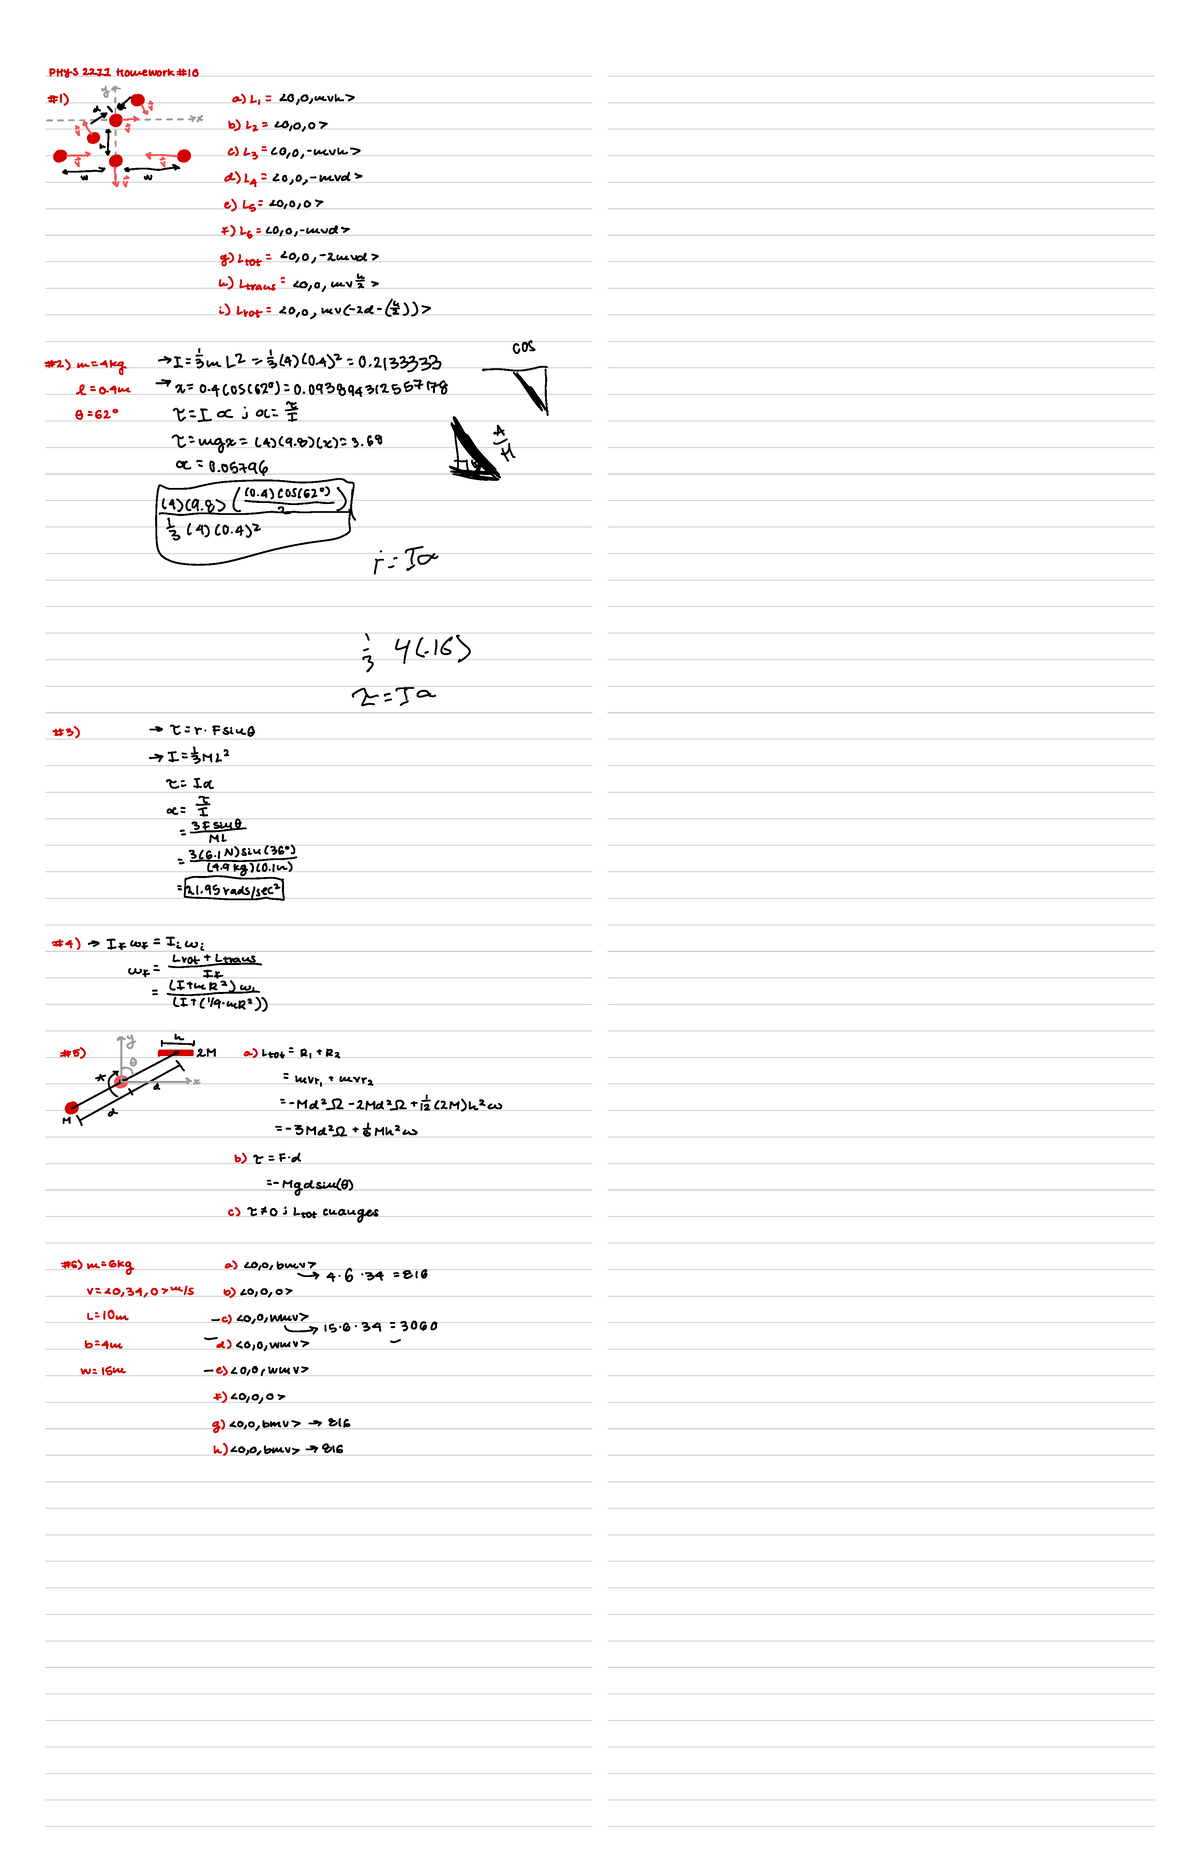 PHYS 2211 Homework #10
#1)
y
x
d
h
w
w
a) L₁ = <0,0,mvh>
b) L₂ = <0,0,0>
c) L₃ = <0,0,-mvh>
d) L₄ = <0,0,-mvd>
e) L₅ = <0,0,0>
f) L₆ = <0,0,-mvd>
g) Ltot = <0,0,-2mvd>
h) Ltrans = <0,0,mv h/2>
i) Lrot = <0,0,mv(-2d-(h/2))>
#2) m=4kg
l=0.4m
θ=62°
→ I = 1/3 m L² = 1/3(4)(0.4)² = 0.2133333
→ x = 0.4(cos(62°) = 0.093894312557178
τ = I α ; α = τ/I
τ = mgx = (4)(9.8)(x) = 3.68
α = 0.05796
(4)(9.8)((0.4)cos(62°)/2)
1/3 (4)(0.4)²
cos
A/H
τ = Iα
1/3 4(.16)
τ = Iα
#3) → τ = r · F sinθ
→ I = 1/3 ML²
τ = Iα
α = τ/I
= 3F sinθ / ML
= 3(6.1 N) sin(36°) / (4.9 kg)(0.1m)
= 21.95 rads/sec²
#4) → I_f ω_f = I_i ω_i
ω_f = Lrot + Ltrans / I_f
= (I+mR²) ω_i / (I+(1/9·mR²))
#5)
y
θ
x
h
2M
d
d
M
a) Ltot = R₁ + R₂
= mvr₁ + mvr₂
= -Md²Ω - 2Md²Ω + 1/12 (2M)h²ω
= -3Md²Ω + 1/6 Mh²ω
b) τ = F·d
= -Mgd sin(θ)
c) τ ≠ 0 ; Ltot changes
#6) m=6kg
v=<0,34,0> m/s
L=10m
b=4m
w=15m
a) <0,0,bmv>
→ 4·6·34 = 816
b) <0,0,0>
-c) <0,0,wmv>
→ 15·6·34 = 3060
-d) <0,0,wmv>
-e) <0,0,wmv>
f) <0,0,0>
g) <0,0,bmv> → 816
h) <0,0,bmv> → 816